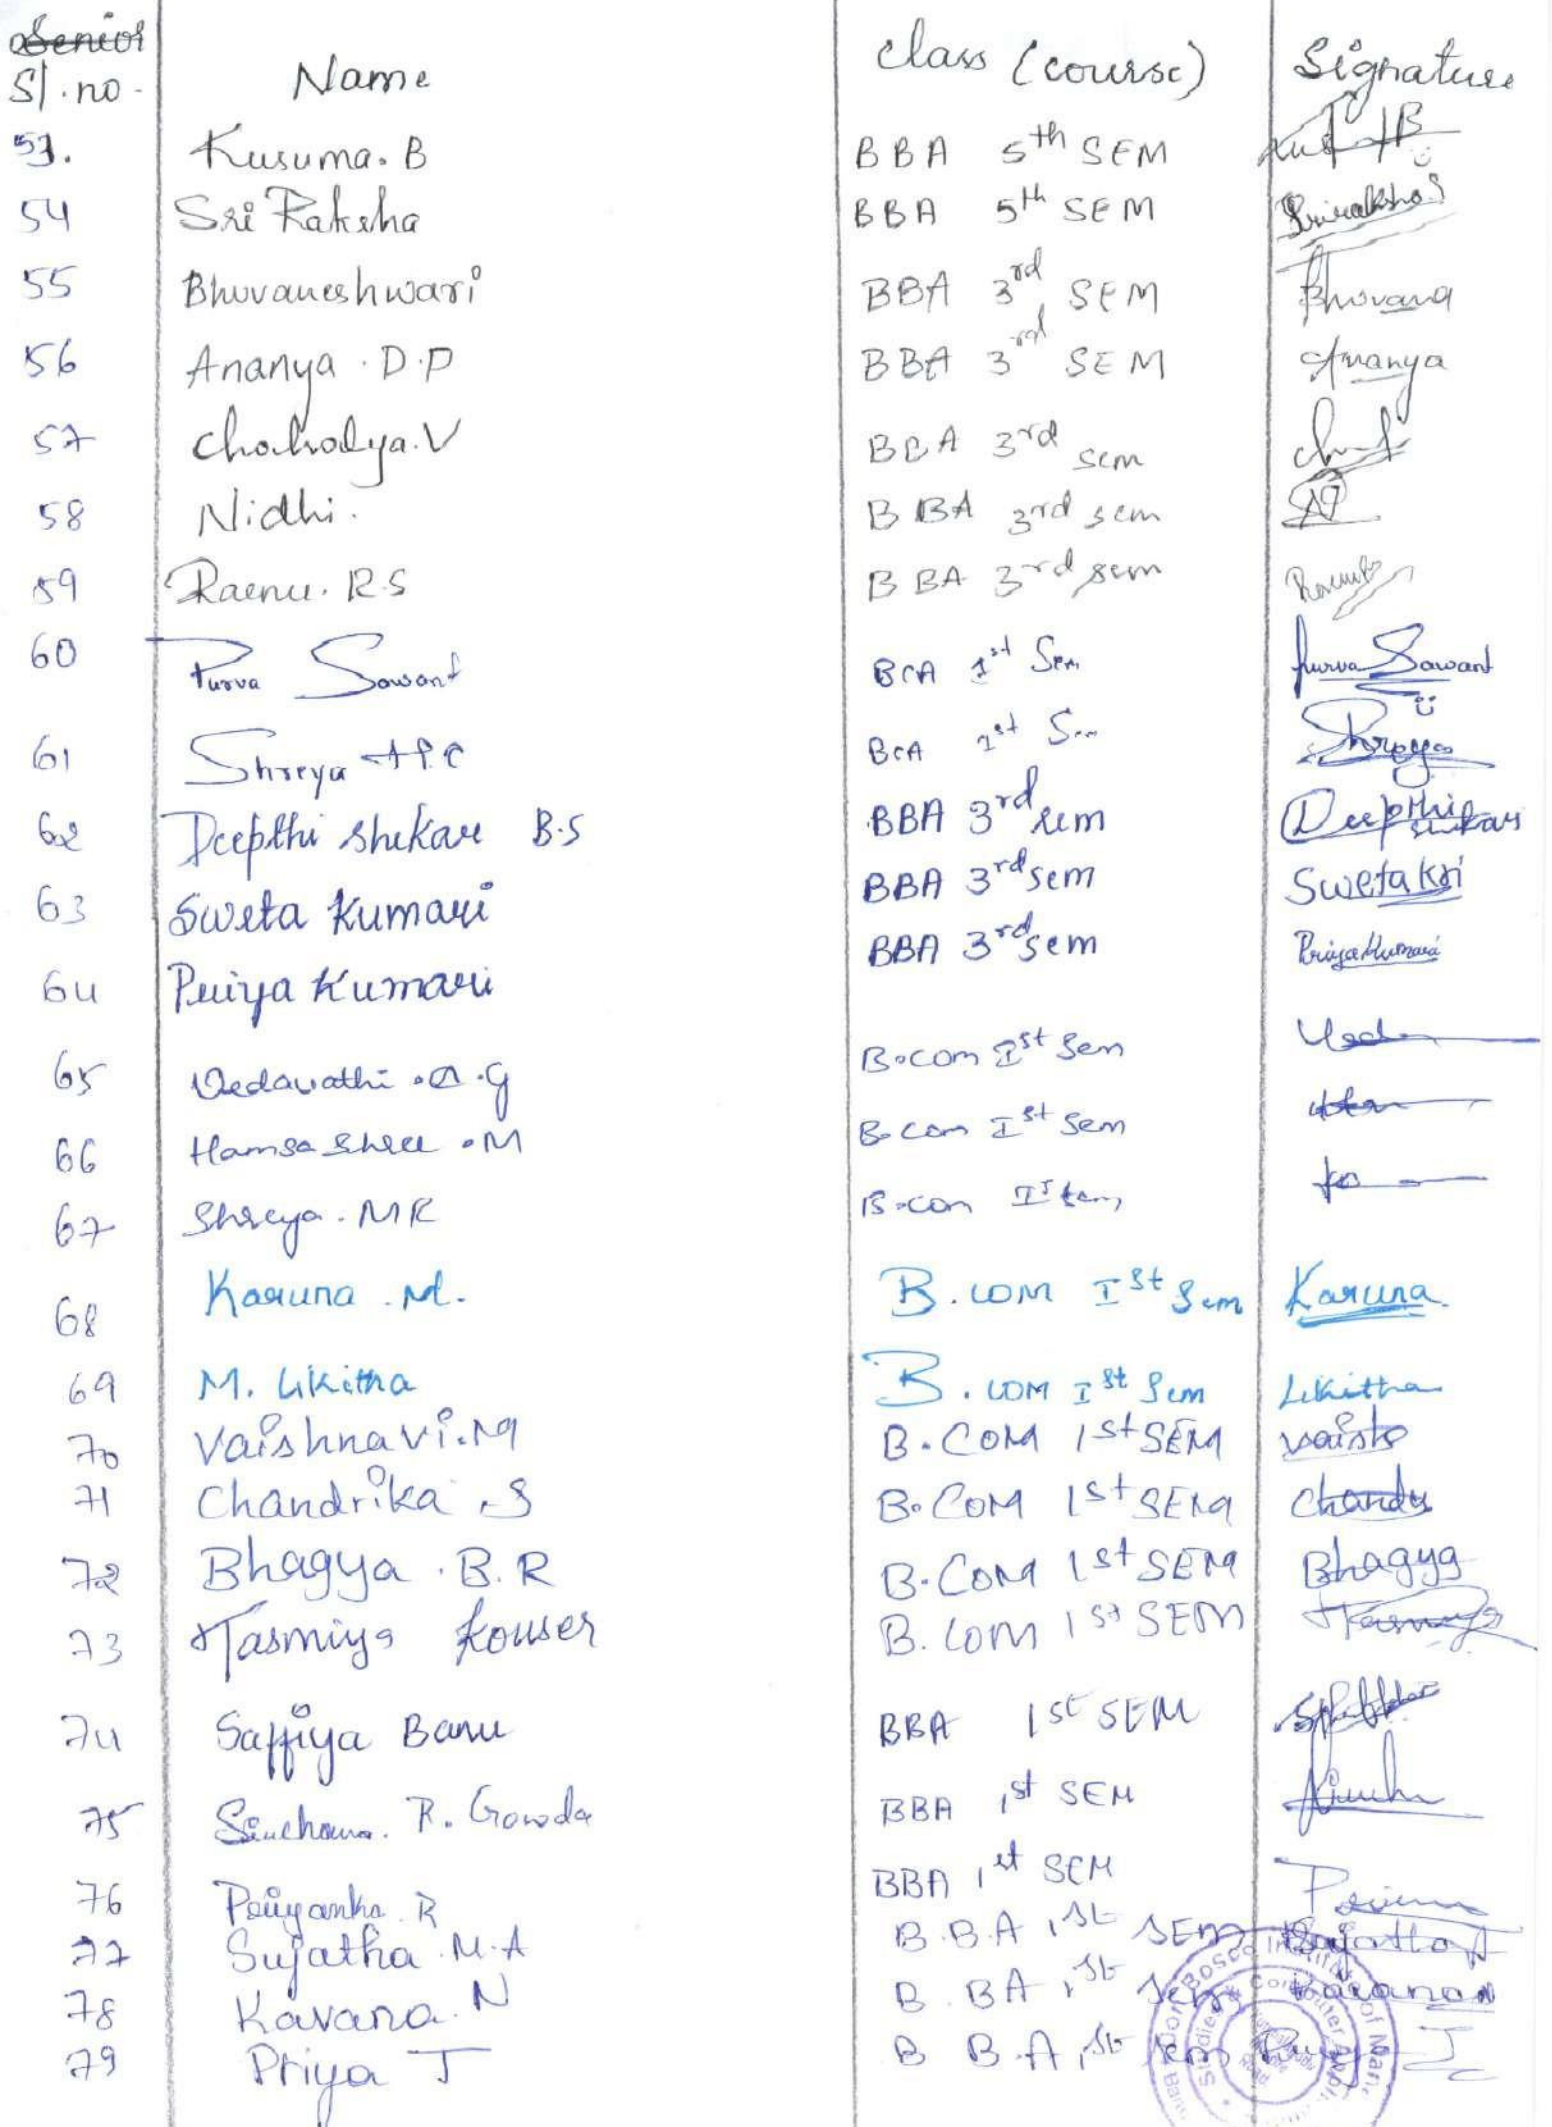 Senior
Sl.no. Name class (course) Signature
53. Kusuma. B BBA 5th SEM
54 Sri Raksha BBA 5th SEM Sriraksha.S
55 Bhuvaneshwari BBA 3rd SEM Bhuvana
56 Ananya . D.P BBA 3rd SEM Ananya
57 V BBA 3rd sem
58 Nidhi. BBA 3rd sem
59 Raenu. R.S BBA 3rd sem
60 Purva Sawant BCA 1st Sem Purva Sawant
61 Shreya H.P.C BCA 1st Sem Shreya
62 Deepthi Shekar B.S BBA 3rd sem Deepthi Shekar
63 Sweta Kumari BBA 3rd sem Sweta Kri
64 Priya Kumari BBA 3rd sem Priya Kumari
65 Vedavathi .A.G B.com Ist Sem
66 Hamsa Shree .M B.com Ist Sem
67 Shreya. MR B.com Ist Sem
68 Karuna .M. B.COM Ist Sem Karuna
69 M. Likitha B.COM Ist Sem Likitha
70 Vaishnavi.M B.COM 1st SEM
71 Chandrika .S B.COM 1st SEM
72 Bhagya .B.R B.COM 1st SEM Bhagya
73 Tasmiya Kouser B.COM 1st SEM Tasmiya
74 Saffiya Banu BBA 1st SEM
75 Sinchana. R. Gowda BBA 1st SEM
76 Priyanka .R BBA 1st SEM
77 Sujatha .M.A B.B.A 1st SEM Sujatha
78 Kavana. N B.BA 1st Sem Kavana N
79 Priya J B B.A 1st Sem Priya J
Don Bosco Institute of
Studies & Computer